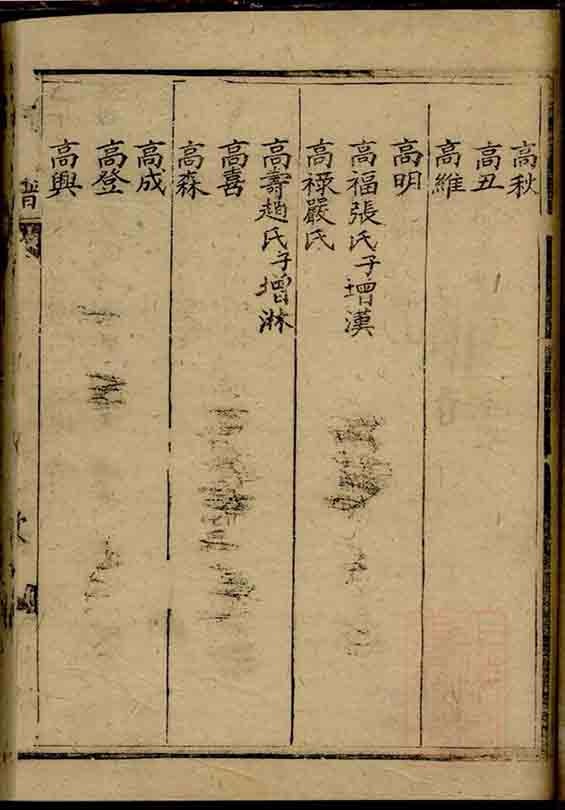 高秋
高丑
高維
高明
高福張氏子增漢
高祿嚴氏
高壽趙氏子增淋
高喜
高森
高成
高登
高興
譜